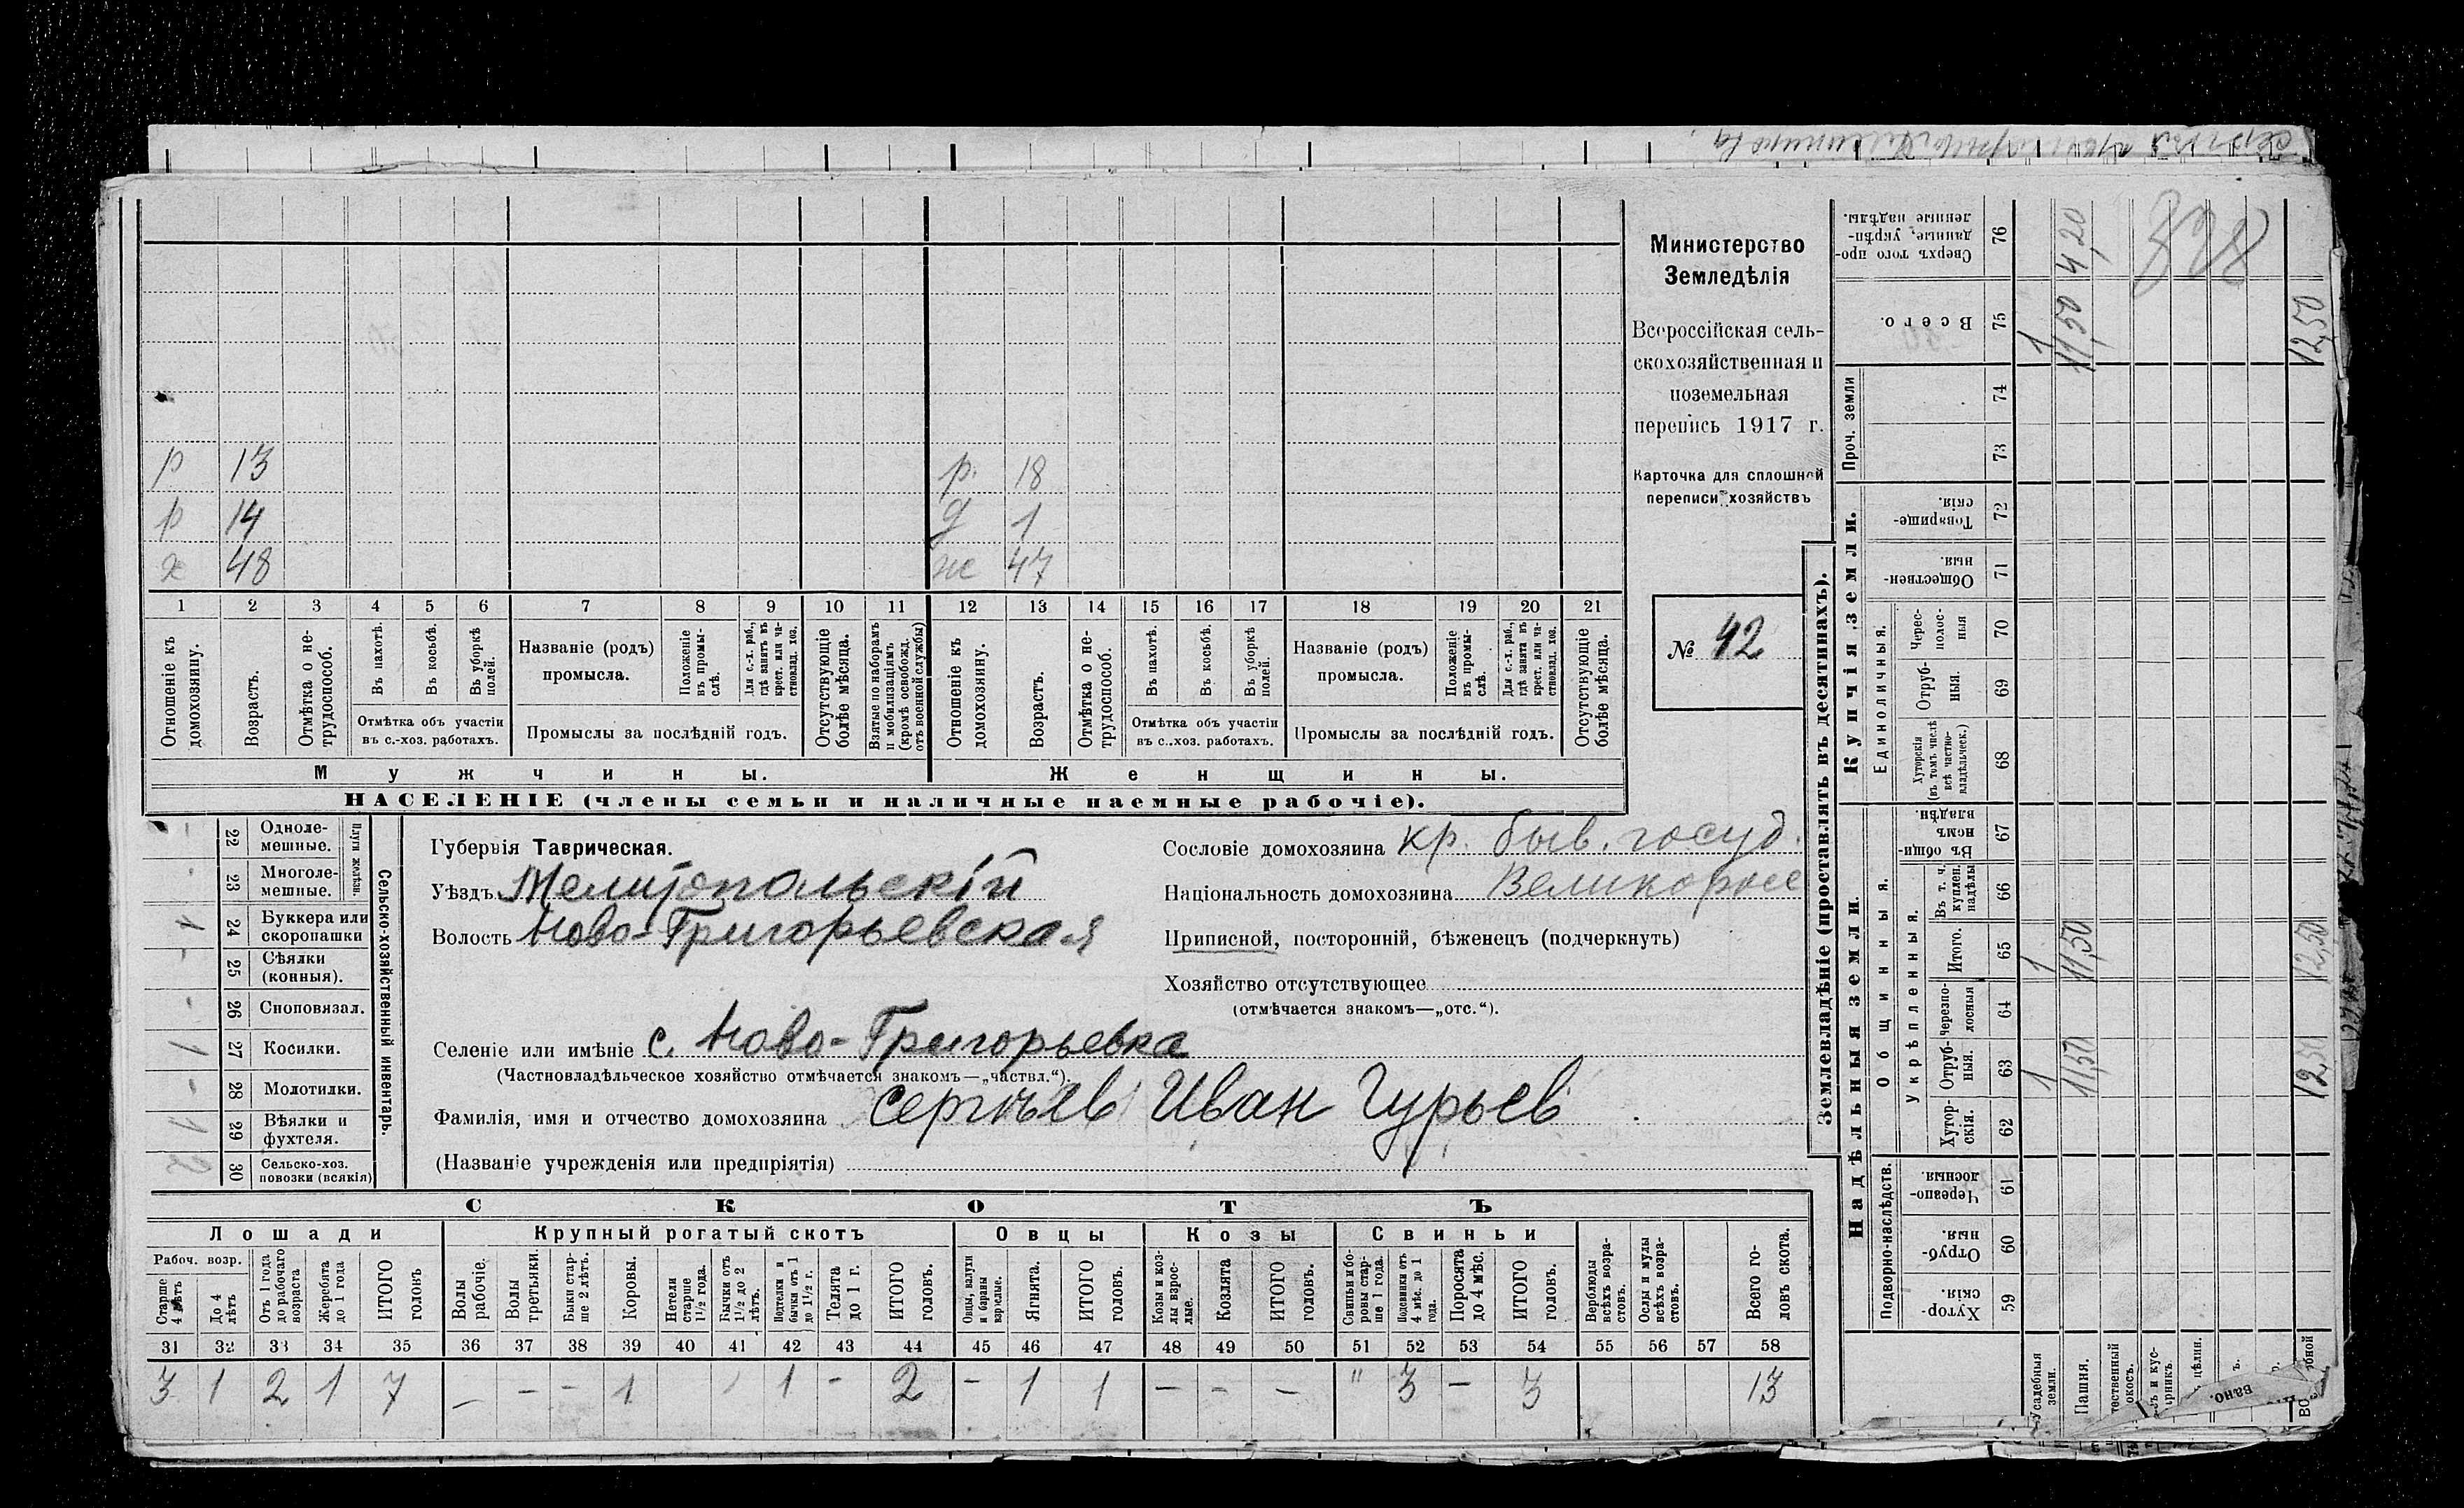 р 13 р. 18
р 14 д 1
х 48 ж 47
1 2 3 4 5 6 7 8 9 10 11 12 13 14 15 16 17 18 19 20 21
Отношеніе къ домохозяину.
Возрастъ.
Отмѣтка о не-трудоспособ.
Въ пахотѣ.
Въ косьбѣ.
Въ уборкѣ полей.
Отмѣтка объ участіи
въ с.-хоз. работахъ.
Названіе (родъ)
промысла.
Положеніе въ промы-слѣ.
Для с.-х. раб., гдѣ занятъ въ крест. или ча-стновлад. хоз.
Промыслы за послѣдній годъ.
Отсутствующіе болѣе мѣсяца.
Взятые по наборамъ и мобилизаціямъ (кромѣ освобожд. отъ военной службы)
Отношеніе къ домохозяину.
Возрастъ.
Отмѣтка о не-трудоспособ.
Въ пахотѣ.
Въ косьбѣ.
Въ уборкѣ полей.
Отмѣтка объ участіи
въ с.-хоз. работахъ.
Названіе (родъ)
промысла.
Положеніе въ промы-слѣ.
Для с.-х. раб., гдѣ занята въ крест. или ча-стновлад. хоз.
Промыслы за послѣдній годъ.
Отсутствующіе болѣе мѣсяца.
Мужчины.
Женщины.
НАСЕЛЕНІЕ (члены семьи и наличные наемные рабочіе).
Министерство
Земледѣлія
Всероссійская сель-
скохозяйственная и
поземельная
перепись 1917 г.
Карточка для сплошной
переписи хозяйствъ
№ 42
22 Одноле-мешные.
23 Многоле-мешные.
Плуги желѣзн.
24 Буккера или скоропашки 1
25 Сѣялки (конныя). -
26 Сноповязал. -
27 Косилки. 1
28 Молотилки. -
29 Вѣялки и фухтеля. 1
30 Сельско-хоз. повозки (всякія) 2
Сельско-хозяйственный инвентарь.
Губернія Таврическая.
Уѣздъ Мелитопольскій
Волость Ново-Григорьевская
Сословіе домохозяина кр. быв. госуд.
Національность домохозяина Великоросс
Приписной, посторонній, бѣженецъ (подчеркнуть)
Хозяйство отсутствующее
(отмѣчается знакомъ—„отс.“).
Селеніе или имѣніе с. Ново-Григорьевка
(Частновладѣльческое хозяйство отмѣчается знакомъ—„частвл.“).
Фамилія, имя и отчество домохозяина Сергѣев Иван Гурьев
(Названіе учрежденія или предпріятія)
СКОТЪ
Лошади Крупный рогатый скотъ Овцы Козы Свиньи
Рабоч. возр.
Старше 4 лѣтъ
До 4 лѣтъ
Отъ 1 года до рабочаго возраста
Жеребята до 1 года
ИТОГО головъ
Волы рабочіе.
Волы третьяки.
Быки стар-ше 2 лѣтъ.
Коровы.
Нетели старше 1½ года.
Бычки отъ 1½ до 2 лѣтъ.
Подтелки и бычки отъ 1 до 1½ г.
Телята до 1 г.
ИТОГО головъ.
Овцы, валухи и бараны взрослые.
Ягнята.
ИТОГО головъ.
Козы и коз-лы взрос-лые.
Козлята
ИТОГО головъ.
Свиньи и бо-ровы стар-ше 1 года.
Подсвинки отъ 4 мѣс. до 1 года.
Поросята до 4 мѣс.
ИТОГО головъ.
Верблюды всѣхъ возра-стовъ.
Ослы и мулы всѣхъ возра-стовъ.
Всего го-ловъ скота.
31 32 33 34 35 36 37 38 39 40 41 42 43 44 45 46 47 48 49 50 51 52 53 54 55 56 57 58
3 1 2 1 7 — — — 1 1 - 2 - 1 1 — - — " 3 — 3 13
Землевладѣніе (проставлять въ десятинахъ).
Надѣльныя земли.
Купчія земли.
Проч. земли
Подворно-наслѣдств.
Общинныя.
Укрѣпленныя.
Единоличныя.
Сверхъ того про-данные, укрѣп-ленные надѣлы. 76 4,20
Всего. 75 1 11,50 12,50
74
73
Товарище-скія. 72
Обществен-ныя. 71
Черес-полос-ныя 70
Отруб-ныя. 69
Хуторскія (въ томъ числѣ всѣ частно-владѣльческ.) 68
Въ общи-номъ владѣн. 67
Въ т. ч. куплен. надѣлы 66
Итого. 65 1 11,50 12,50
Черезпо-лосныя 64
Отруб-ныя. 63 1 11,50 12,50
Хутор-скія. 62
Черезпо-лосныя. 61
Отруб-ныя. 60
Хутор-скія. 59
Усадебныя земли.
Пашня.